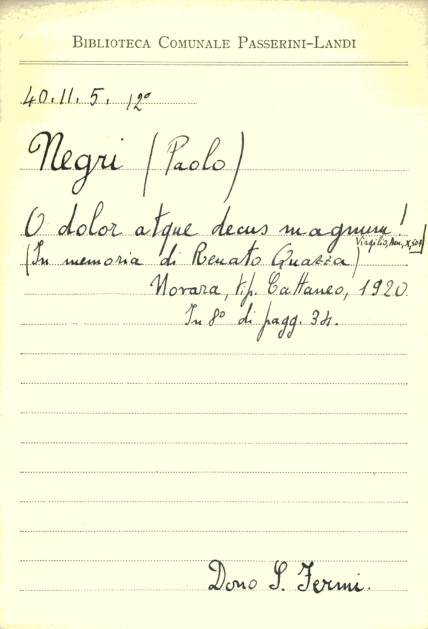 BIBLIOTECA COMUNALE PASSERINI-LANDI
40.II.5. 12º
Negri (Paolo)
O dolor atque decus magnum!
Virgilio, Aen., X, 507
(In memoria di Renato Quazza)
Novara, tip. Cattaneo, 1920
In 8º di pagg. 34.
Dono S. Fermi.